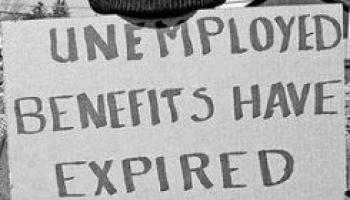 UNEMPLOYED
BENEFITS HAVE
EXPIRED